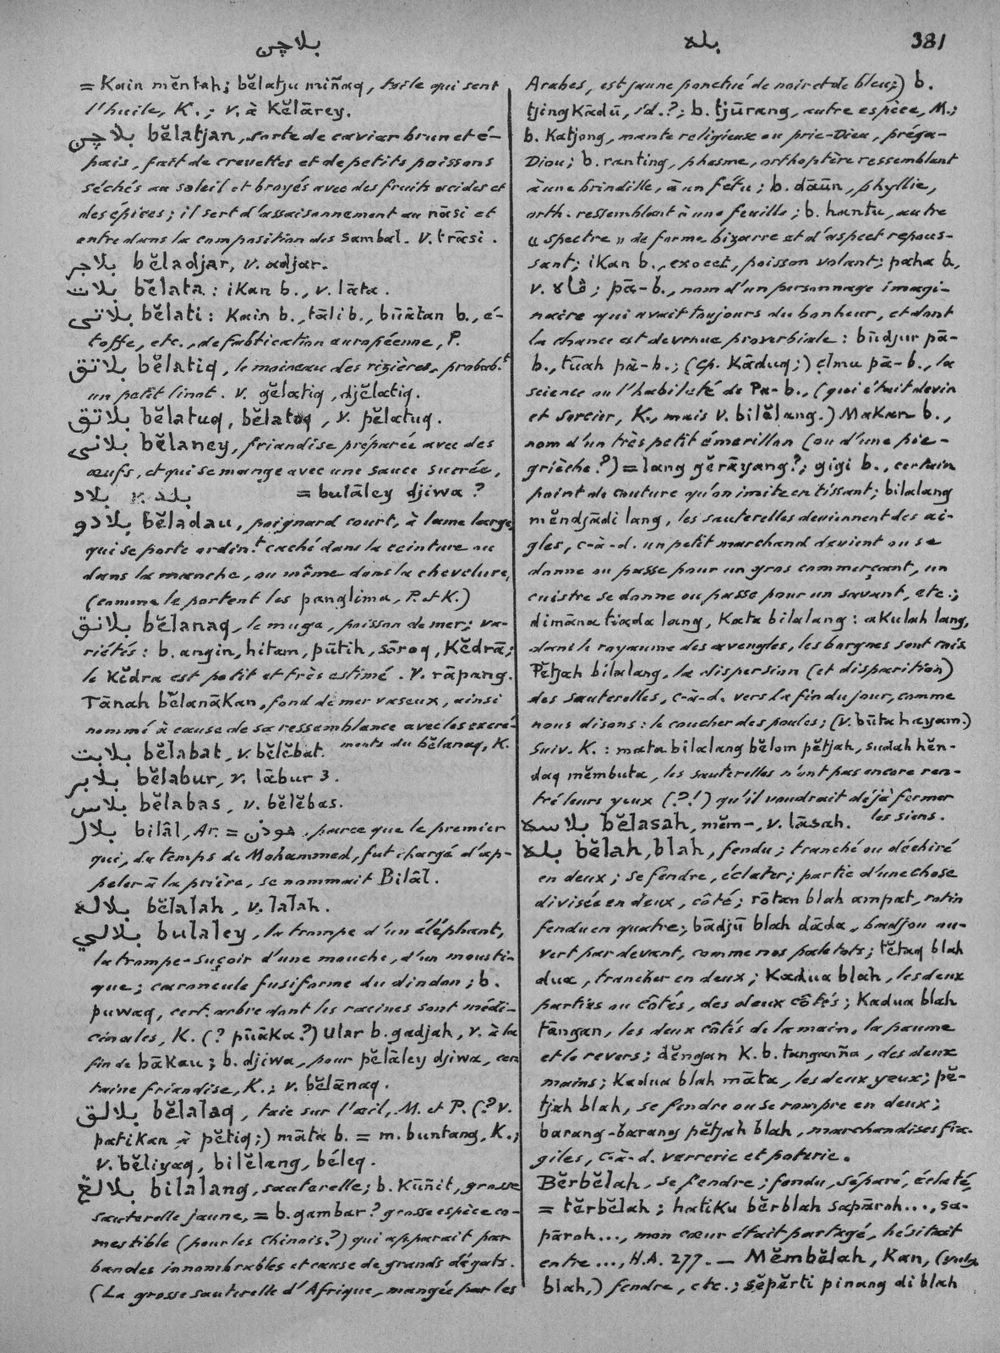 بلاچن
بله
381
= Kain mĕntah; bĕlatju miñaq, toile qui sent
l'huile, K.; v. à Kĕlārey.
بلاچن bĕlatjan, sorte de caviar brun et é-
pais, fait de crevettes et de petits poissons
séchés au soleil et broyés avec des fruits acides et
des épices; il sert d'assaisonnement au nāsi et
entre dans la composition des sambal. V. trāsi.
بلاجر bĕladjar, v. adjar.
بلات bĕlata: iKan b., v. lāta.
بلاتي bĕlati: Kain b., tāli b., būātan b., é-
toffe, etc., de fabrication européenne, P.
بلاتق bĕlatiq, le moineau des rizières, probab.t
un petit linot. v. gĕlatiq, djĕlatiq.
بلاتق bĕlatuq, bĕlatoq, v. pĕlatuq.
بلاني bĕlaney, friandise préparée avec des
œufs, et qui se mange avec une sauce sucrée,
بلاد v. بلد = bulāley djiwa?
بلادو bĕladau, poignard court, à lame large,
qui se porte ordin.t caché dans la ceinture ou
dans la manche, ou même dans la chevelure,
(comme le portent les panglima, P. et K.)
بلانق bĕlanaq, le muge, poisson de mer; va-
riétés: b. angin, hitam, pūtih, sōroq, Kĕdrā;
le Kĕdra est petit et très estimé. V. rāpang.
Tānah bĕlanāKan, fond de mer vaseux, ainsi
nommé à cause de sa ressemblance avec les excré-
ments du bĕlanaq, K.
بلابت bĕlabat, v. bĕlĕbat.
بلابر bĕlabur, v. lābur 3.
بلابس bĕlabas, v. bĕlĕbas.
بلال bilâl, Ar. = موذن, parce que le premier
qui, du temps de Mohammed, fut chargé d'ap-
peler à la prière, se nommait Bilâl.
بلاله bĕlalah, v. lalah.
بلالي bulaley, la trompe d'un éléphant,
la trompe-suçoir d'une mouche, d'un mousti-
que; caroncule fusiforme du dindon; b.
puwaq, cert. arbre dont les racines sont médi-
cinales, K. (? pūāKa?) Ular b. gadjah, v. à la
fin de bāKau; b. djiwa, pour pĕlāley djiwa, cer
taine friandise, K.; v. bĕlānaq.
بلالق bĕlalaq, taie sur l'œil, M. et P. (? v.
patiKan à pĕtiq;) māta b. = m. buntang, K.;
v. bĕliyaq, bilĕlang, béleq.
بلالڠ bilalang, sauterelle; b. Kūñit, grosse
sauterelle jaune, = b. gambar? grosse espèce co-
mestible (pour les Chinois?) qui apparait par
bandes innombrables et cause de grands dégats.
(La grosse sauterelle d'Afrique, mangée par les
Arabes, est jaune ponctué de noir et de bleu;) b.
tjingKādū, id.?; b. tjūrang, autre espèce, M.;
b. Katjong, mante religieuse ou prie-Dieu, préga-
Diou; b. ranting, phasme, orthoptère ressemblant
à une brindille, à un fétu; b. dāūn, phyllie,
orth. ressemblant à une feuille; b. hantu, autre
« spectre » de forme bizarre et d'aspect repous-
sant; iKan b., exocet, poisson volant; paha b.,
v. ڤاء; pā-b., nom d'un personnage imagi-
naire qui avait toujours du bonheur, et dont
la chance est devenue proverbiale: būdjur pā-
b., tūah pā-b.; (cp. Kāduq;) elmu pā-b., la
science ou l'habileté de Pa-b., (qui était devin
et sorcier, K., mais v. bilĕlang.) MaKan b.,
nom d'un très petit émerillon (ou d'une pie-
grièche?) = lang gĕrāyang?; gigi b., certain
point de couture qu'on imite en tissant; bilalang
mĕndjādi lang, les sauterelles deviennent des ai-
gles, c-à-d. un petit marchand devient ou se
donne ou passe pour un gros commerçant, un
cuistre se donne ou passe pour un savant, etc.;
dimāna tiāda lang, Kata bilalang: aKulah lang,
dans le royaume des aveugles, les borgnes sont rois.
Pĕtjah bilalang, la dispersion (et disparition)
des sauterelles, c-à-d. vers la fin du jour, comme
nous disons: le coucher des poules; (v. būta hayam.)
Suiv. K.: mata bilalang bĕlom pĕtjah, sudah hĕn-
daq mĕmbuta, les sauterelles n'ont pas encore ren-
tré leurs yeux (?!) qu'il voudrait déjà fermer
les siens.
بلاسه bĕlasah, mĕm-, v. lāsah.
بله bĕlah, blah, fendu; tranché ou déchiré
en deux; se fendre, éclater; partie d'une chose
divisée en deux, côté; rōtan blah ampat, rotin
fendu en quatre; bādjū blah dāda, badjou ou-
vert par devant, comme nos paletots; tĕtaq blah
dua, trancher en deux; Kadua blah, les deux
parties ou côtés, des deux côtés; Kadua blah
tāngan, les deux côtés de la main, la paume
et le revers; dĕngan K. b. tanganña, des deux
mains; Kadua blah māta, les deux yeux; pĕ-
tjah blah, se fendre ou se rompre en deux;
barang-barang pĕtjah blah, marchandises fra-
giles, c-à-d. verrerie et poterie.
Bĕrbĕlah, se fendre; fendu, séparé, éclaté,
= tĕrbĕlah; hatiKu bĕrblah sapāroh..., sa-
pāroh..., mon cœur était partagé, hésitait
entre..., H.A. 277. — Mĕmbĕlah, Kan, (vulg.
blah,) fendre, etc.; sĕpĕrti pinang di blah